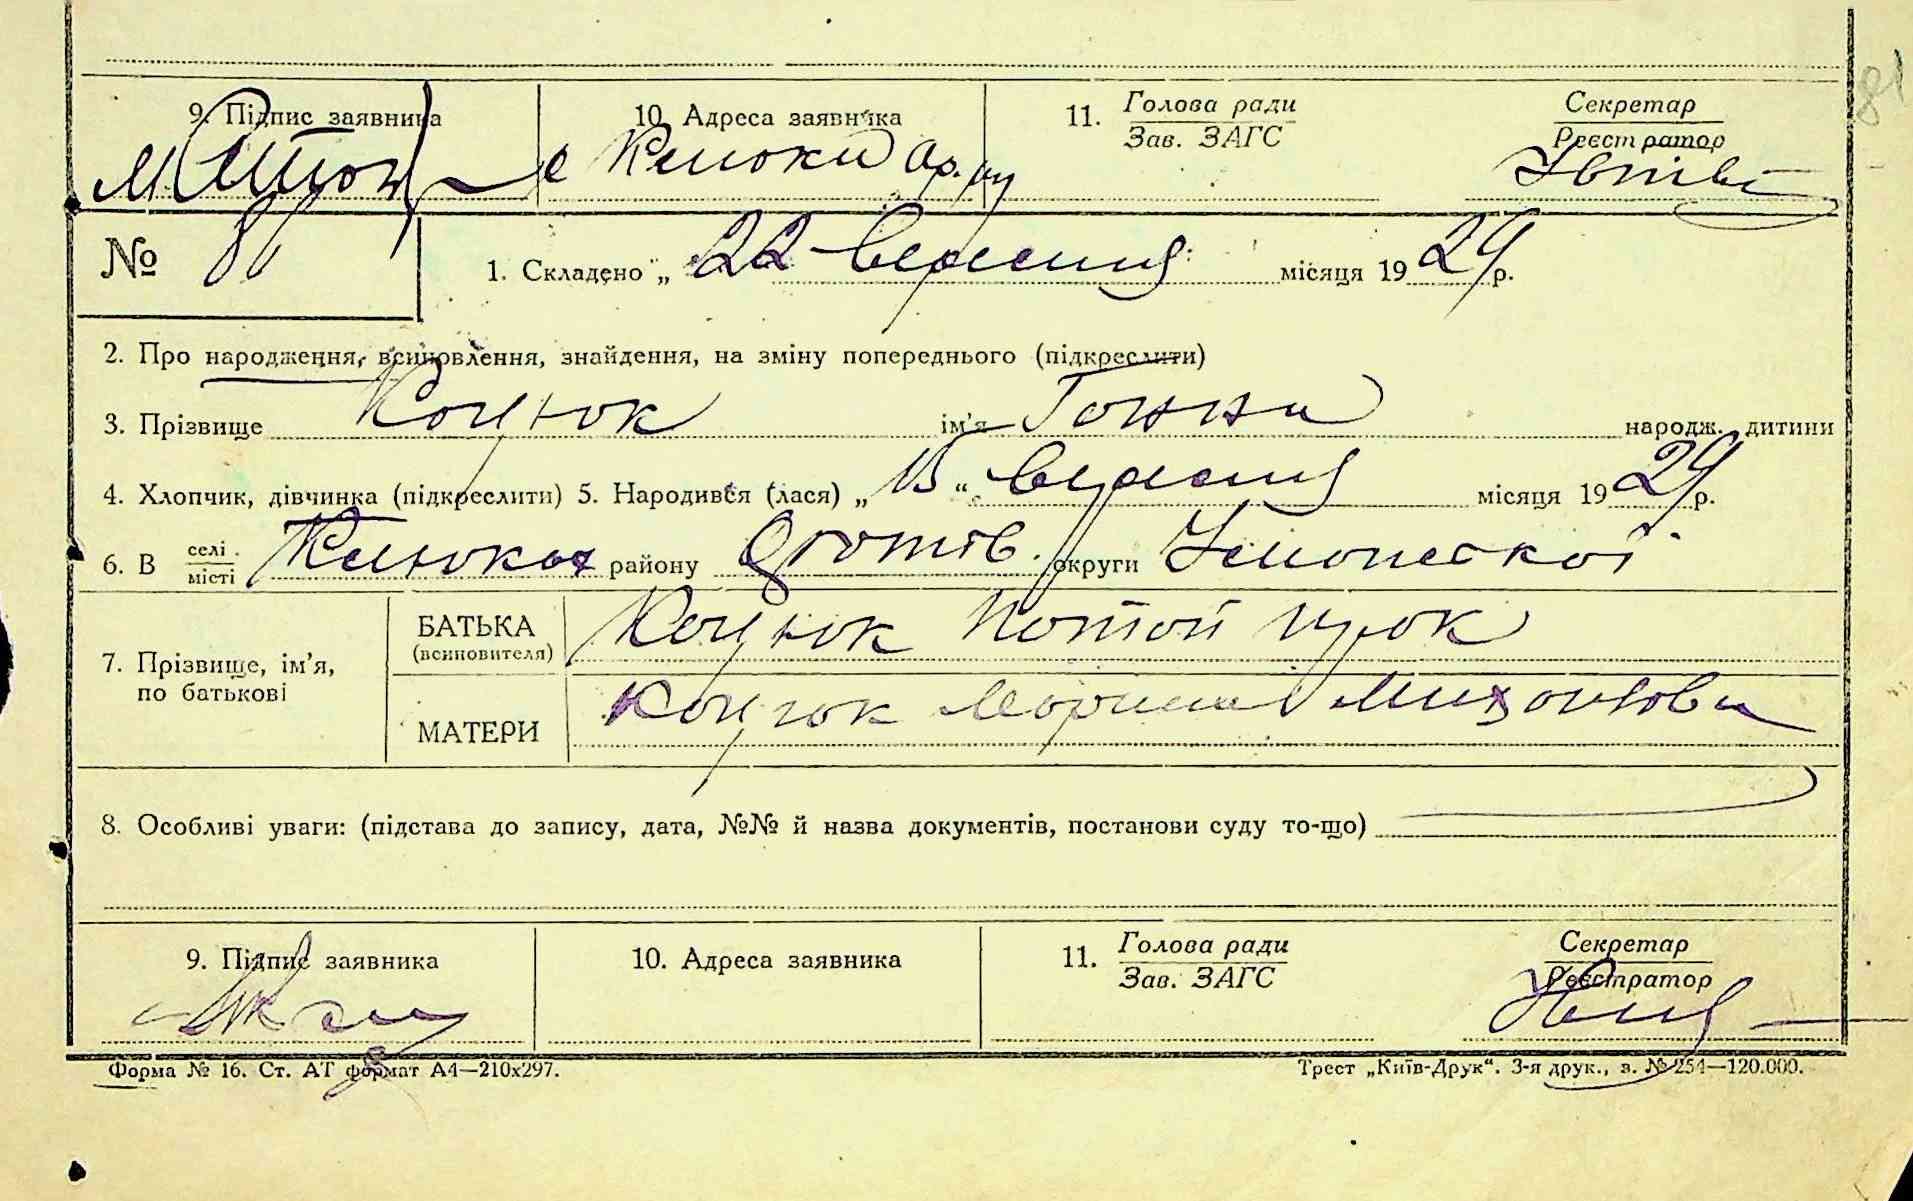 9. Підпис заявника 10. Адреса заявника 11. Голова ради Зав. ЗАГС Секретар Реєстратор
81
№ 1. Складено „ 22 вересня місяця 1929 р.
2. Про народження, всиновлення, знайдення, на зміну попереднього (підкреслити)
3. Прізвище Коцюк ім'я Ганна народж. дитини
4. Хлопчик, дівчинка (підкреслити) 5. Народився (лася) „ 15 “ вересня місяця 1929 р.
6. В селі місті Клюках району округи Уманської
7. Прізвище, ім'я, по батькові
БАТЬКА (всиновителя) Коцюк
МАТЕРИ Коцюк Марина Михайлова
8. Особливі уваги: (підстава до запису, дата, №№ й назва документів, постанови суду то-що)
9. Підпис заявника 10. Адреса заявника 11. Голова ради Зав. ЗАГС Секретар Реєстратор
Форма № 16. Ст. АТ формат А4—210х297. Трест „Київ-Друк“. 3-я друк., з. № 254—120.000.